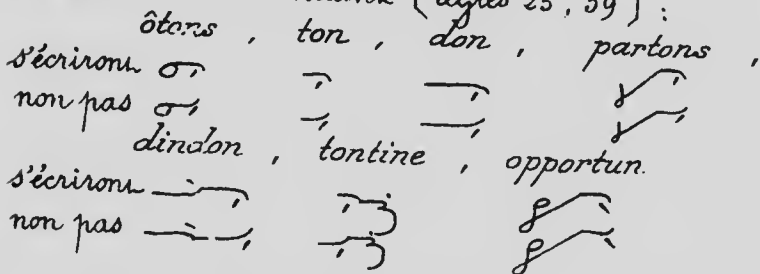 (règles 25, 59) :
ôtons, ton, don, partons,
s'écriront
non pas
dindon, tontine, opportun.
s'écriront
non pas